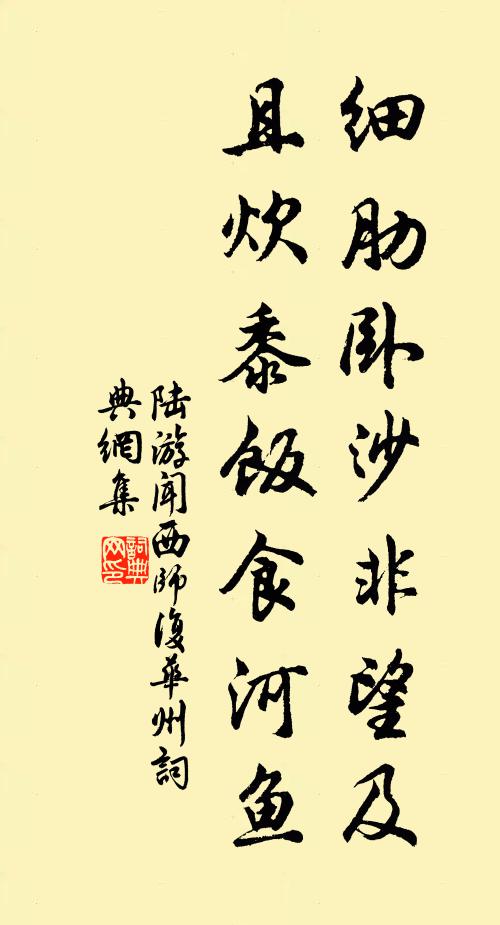 细肋卧沙非望及
且炊黍饭食河鱼
陆游闻西师復華州詞
典網集
詞典
网印